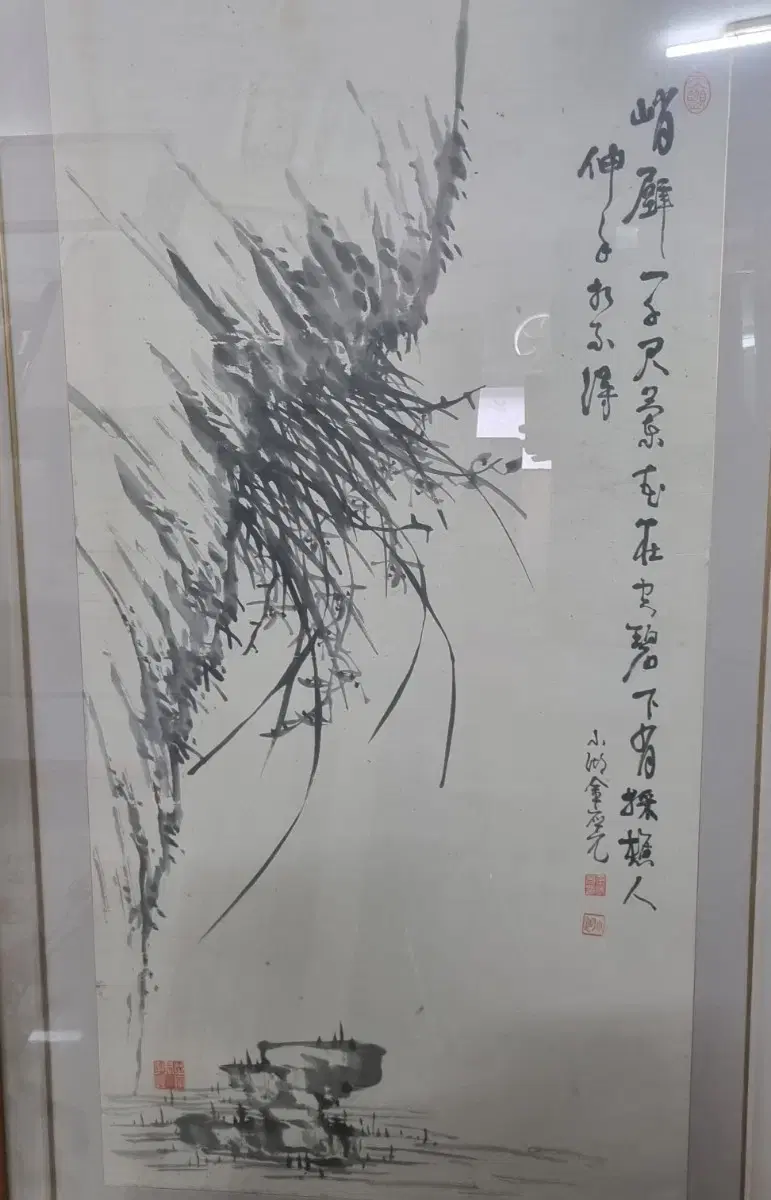 峭壁一千尺蘭花在空碧下有採樵人
伸手折不得
小湖金應元